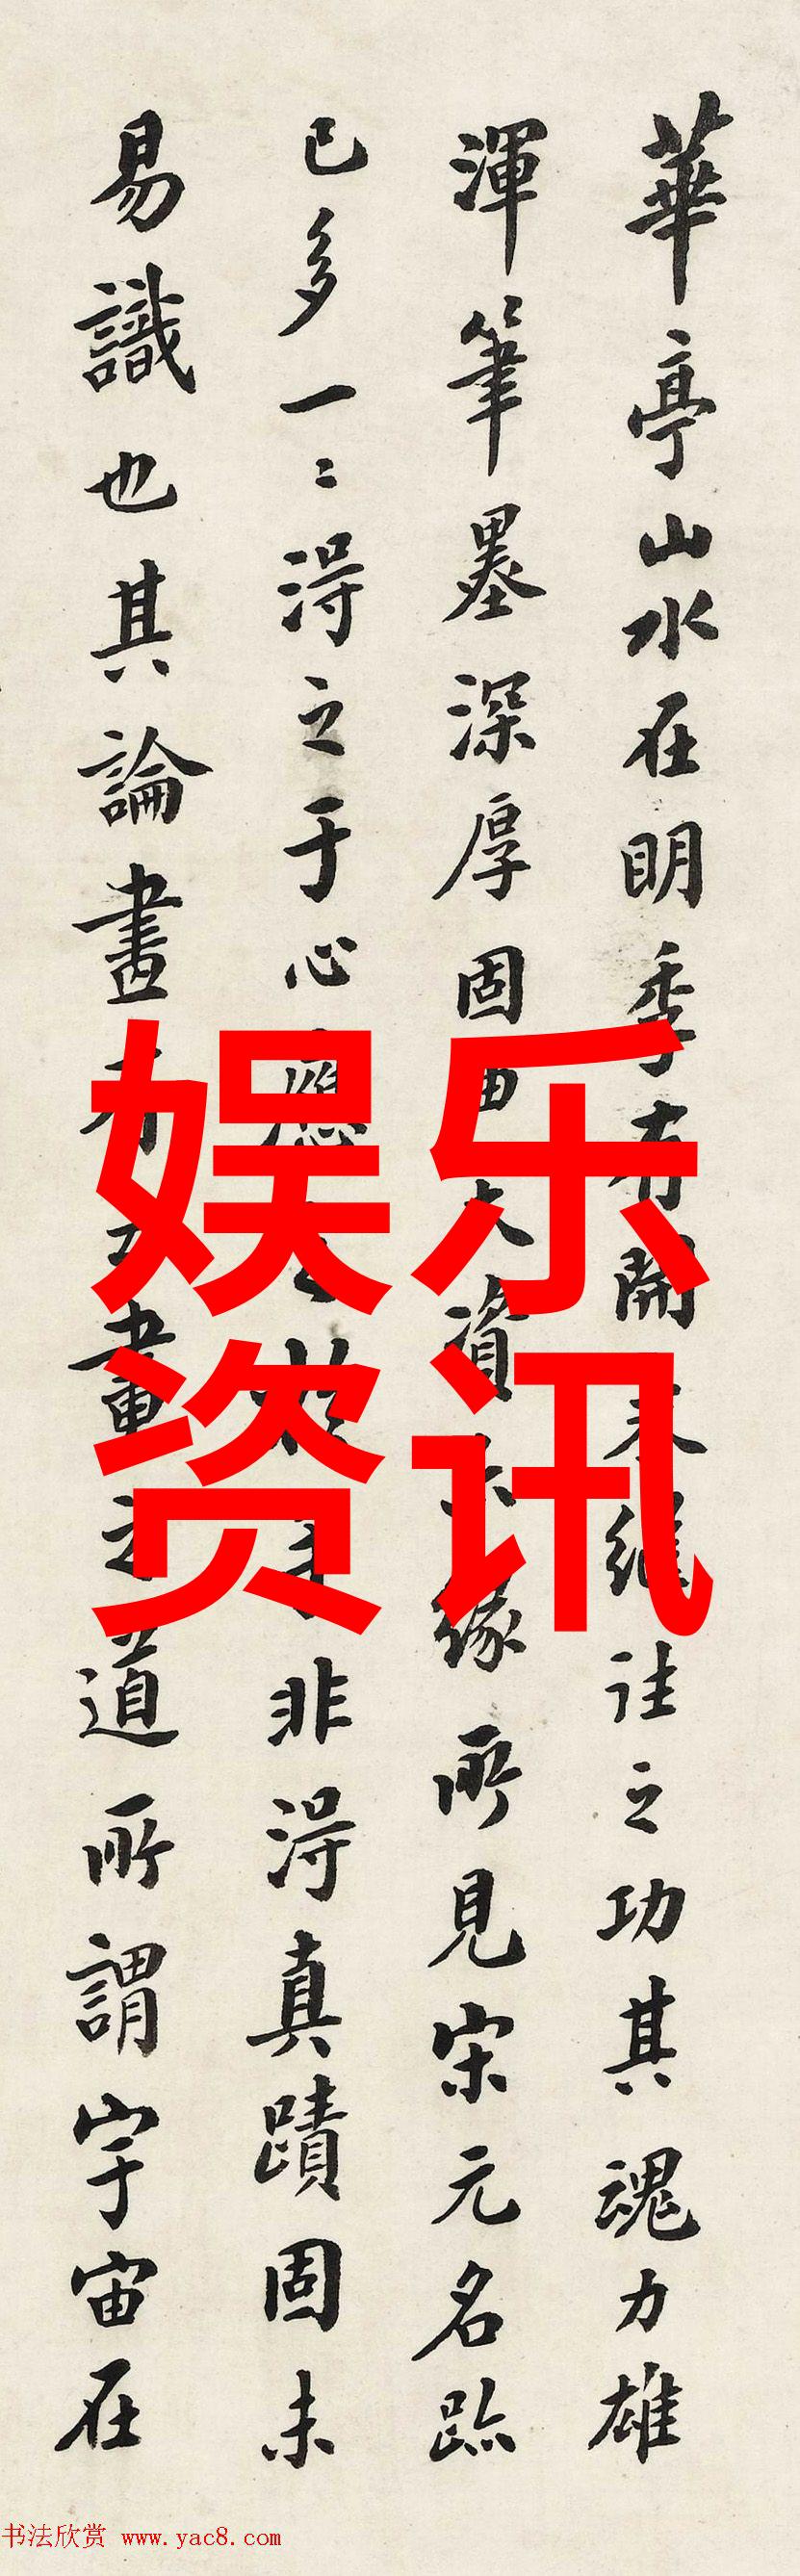 華亭山水在明季有開 來繼往之功其魂力雄
渾筆墨深厚固由天資 亦緣所見宋元名跡
已多一〻得之于心應之於手非得真蹟固未
易識也其論畫 畫之道所謂宇宙在
娱乐
资讯
书法欣赏 www.yac8.com